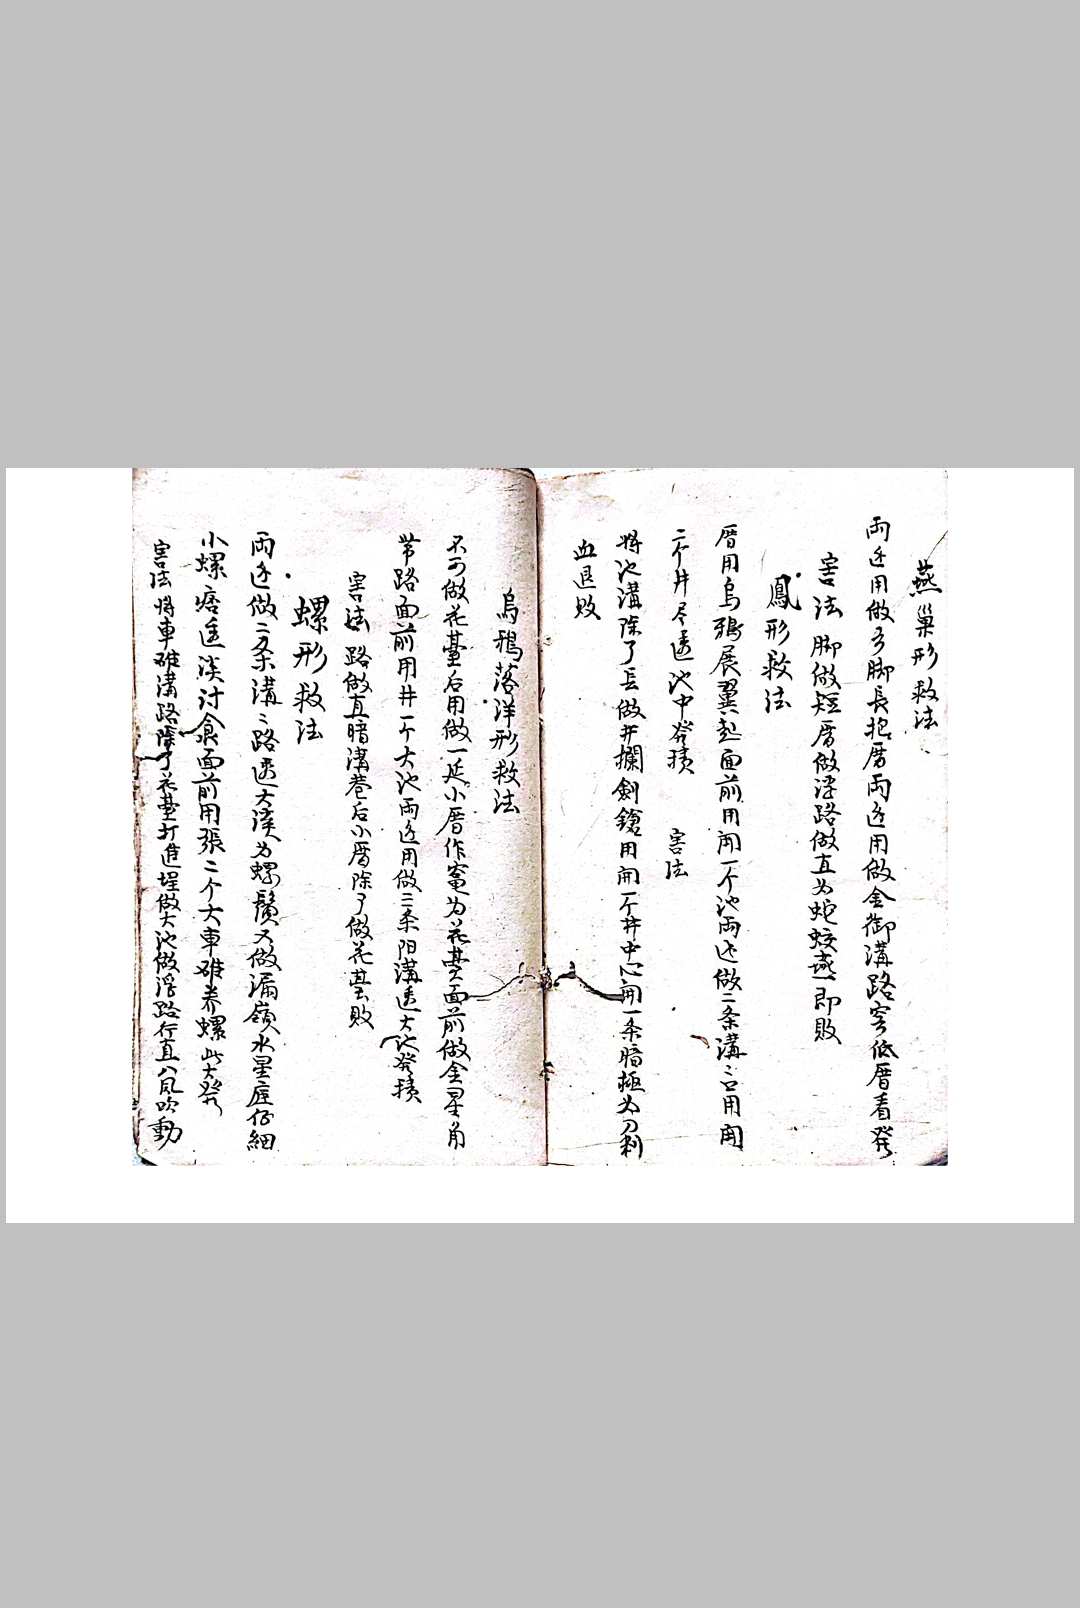 燕巢形救法
両边用做多脚長抱厝両边用做金御溝路窄低厝看発
害法 脚做短厝做浮路做直为蛇蛟燕即敗
鳳形救法
厝用烏鴉展翼起面前用開一个池両边做二条溝〻口用開
二个井尽透池中発積 害法
将池溝除了丘做井攔劍鎗用開一个井中心開一条暗極为刀利
血退敗
烏鴉落洋形救法
不可做花臺后用做一延小厝作竃为花臺面前做金星角
节路面前用井一个大池両边用做三条阳溝透大池発積
害法 路做直暗溝巷后小厝除了做花臺敗
螺形救法
両边做二条溝〻路透大溪为螺鬚又做漏嶺水星庭仔細
小螺痞逢淡汁食面前用張二个大車碓养螺此大発
害法将車碓溝路除了花臺打進埕做大池做浮路行直八风吹動